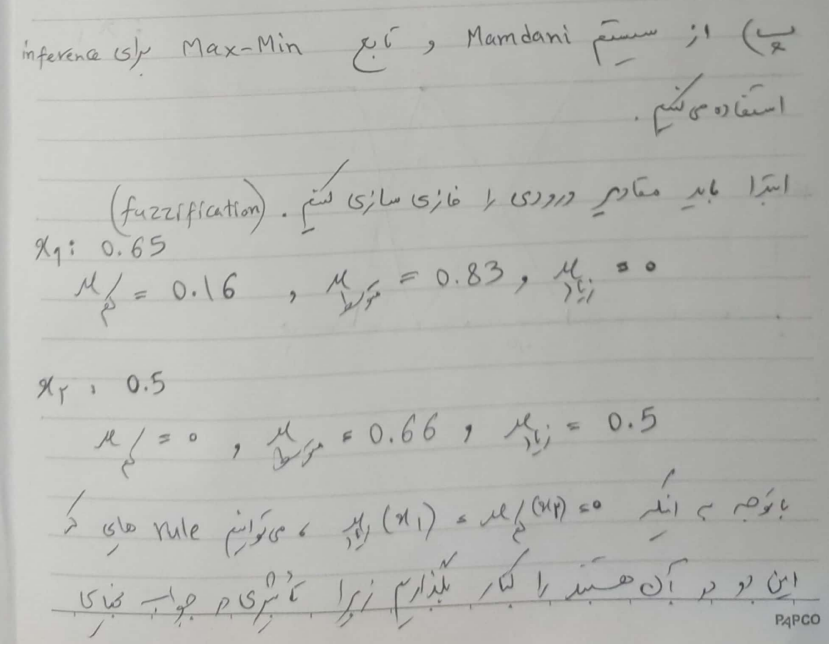 پ) از سیستم Mamdani و تابع Max-Min برای inference
استفاده می‌کنیم.
ابتدا باید مقادیر ورودی را فازی سازی کنیم. (fuzzification)
x₁: 0.65
μکم = 0.16 , μمتوسط = 0.83 , μزیاد = 0
x₂: 0.5
μکم = 0 , μمتوسط = 0.66 , μزیاد = 0.5
باتوجه به اینکه μزیاد(x₁) = μکم(x₂) = 0 ، می‌توانیم rule های که
این دو در آن هستند را کنار بگذاریم زیرا تاثیری در جواب
PAPCO